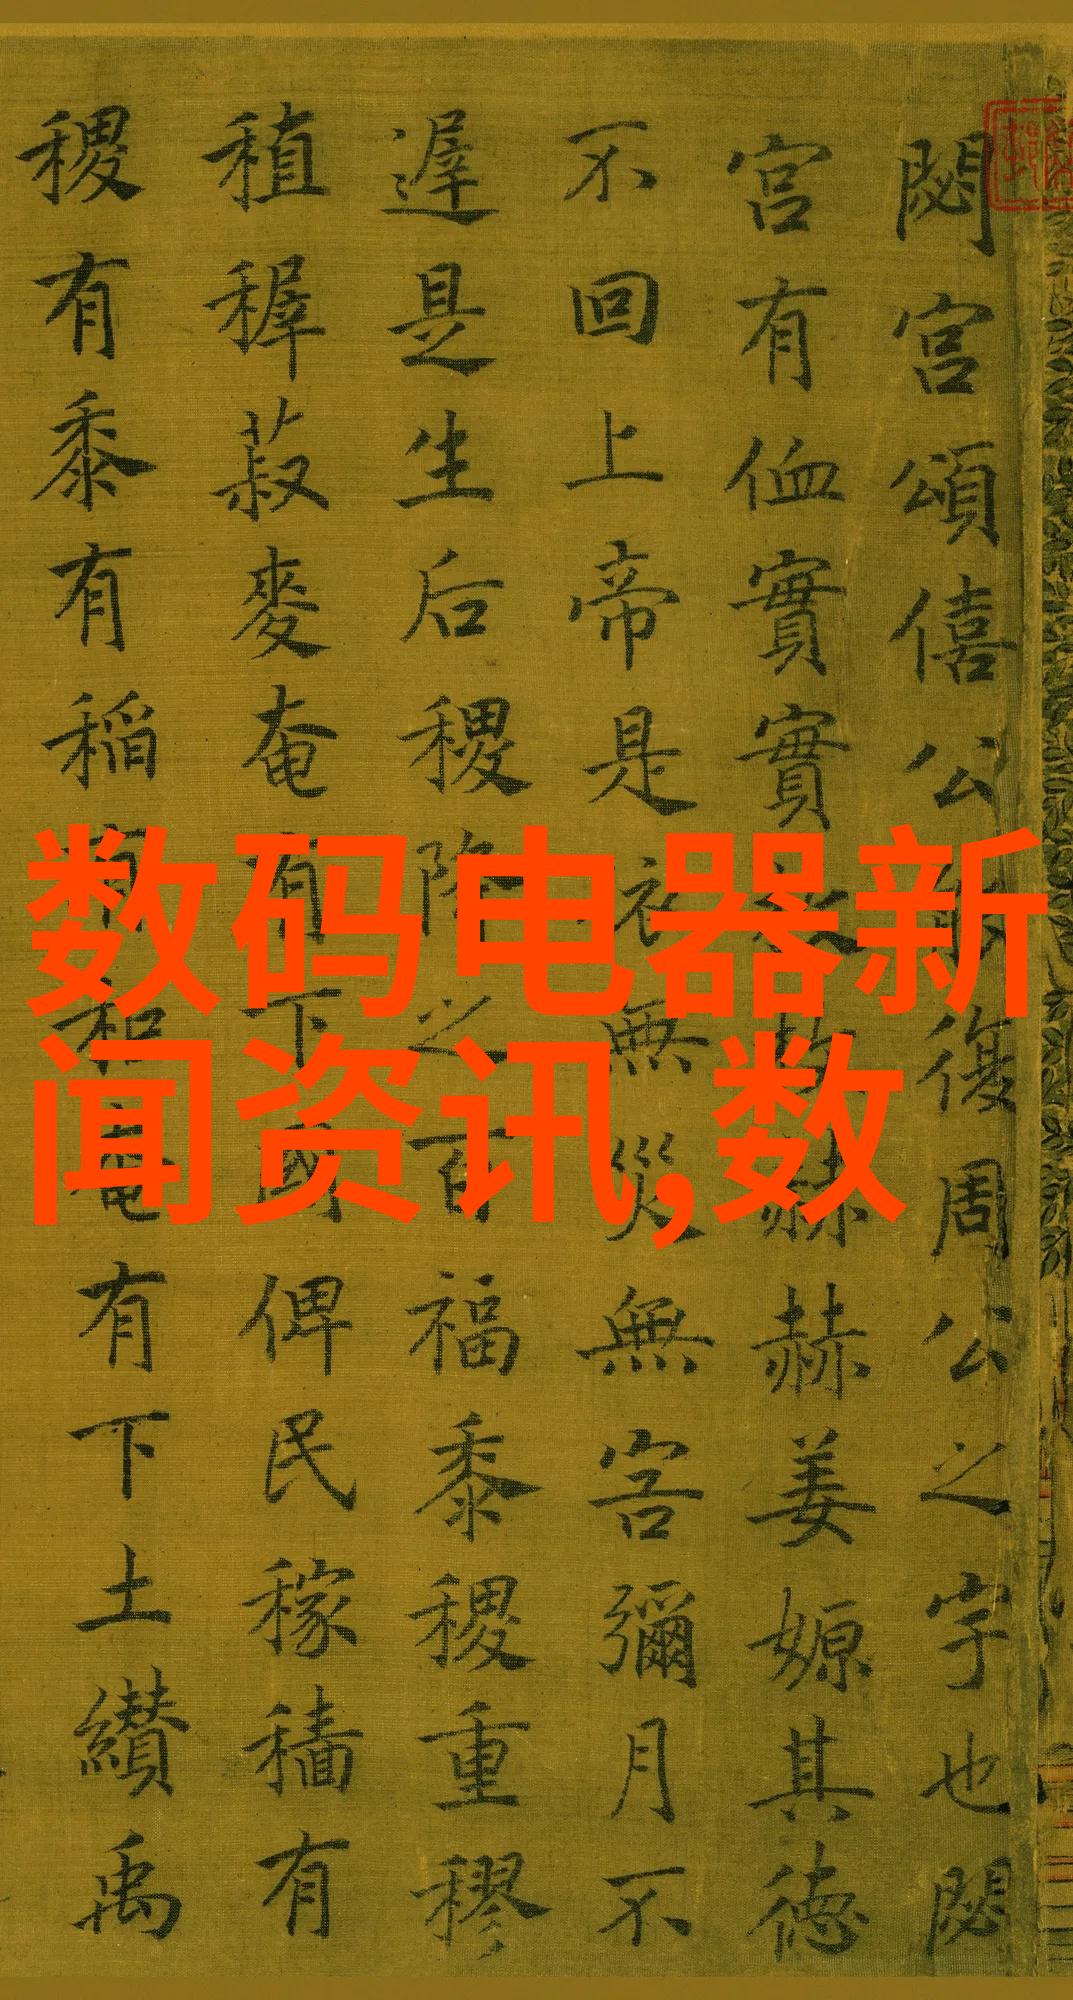 閟宮頌僖公能復周公之宇也閟
宮有侐實實枚枚赫赫姜嫄其德
不回上帝是依無災無害彌月不
遲是生后稷降之百福黍稷重穋
稙稺菽麥奄有下國俾民稼穡有
稷有黍有稻有秬奄有下土纘禹
数码电器新
闻资讯,数